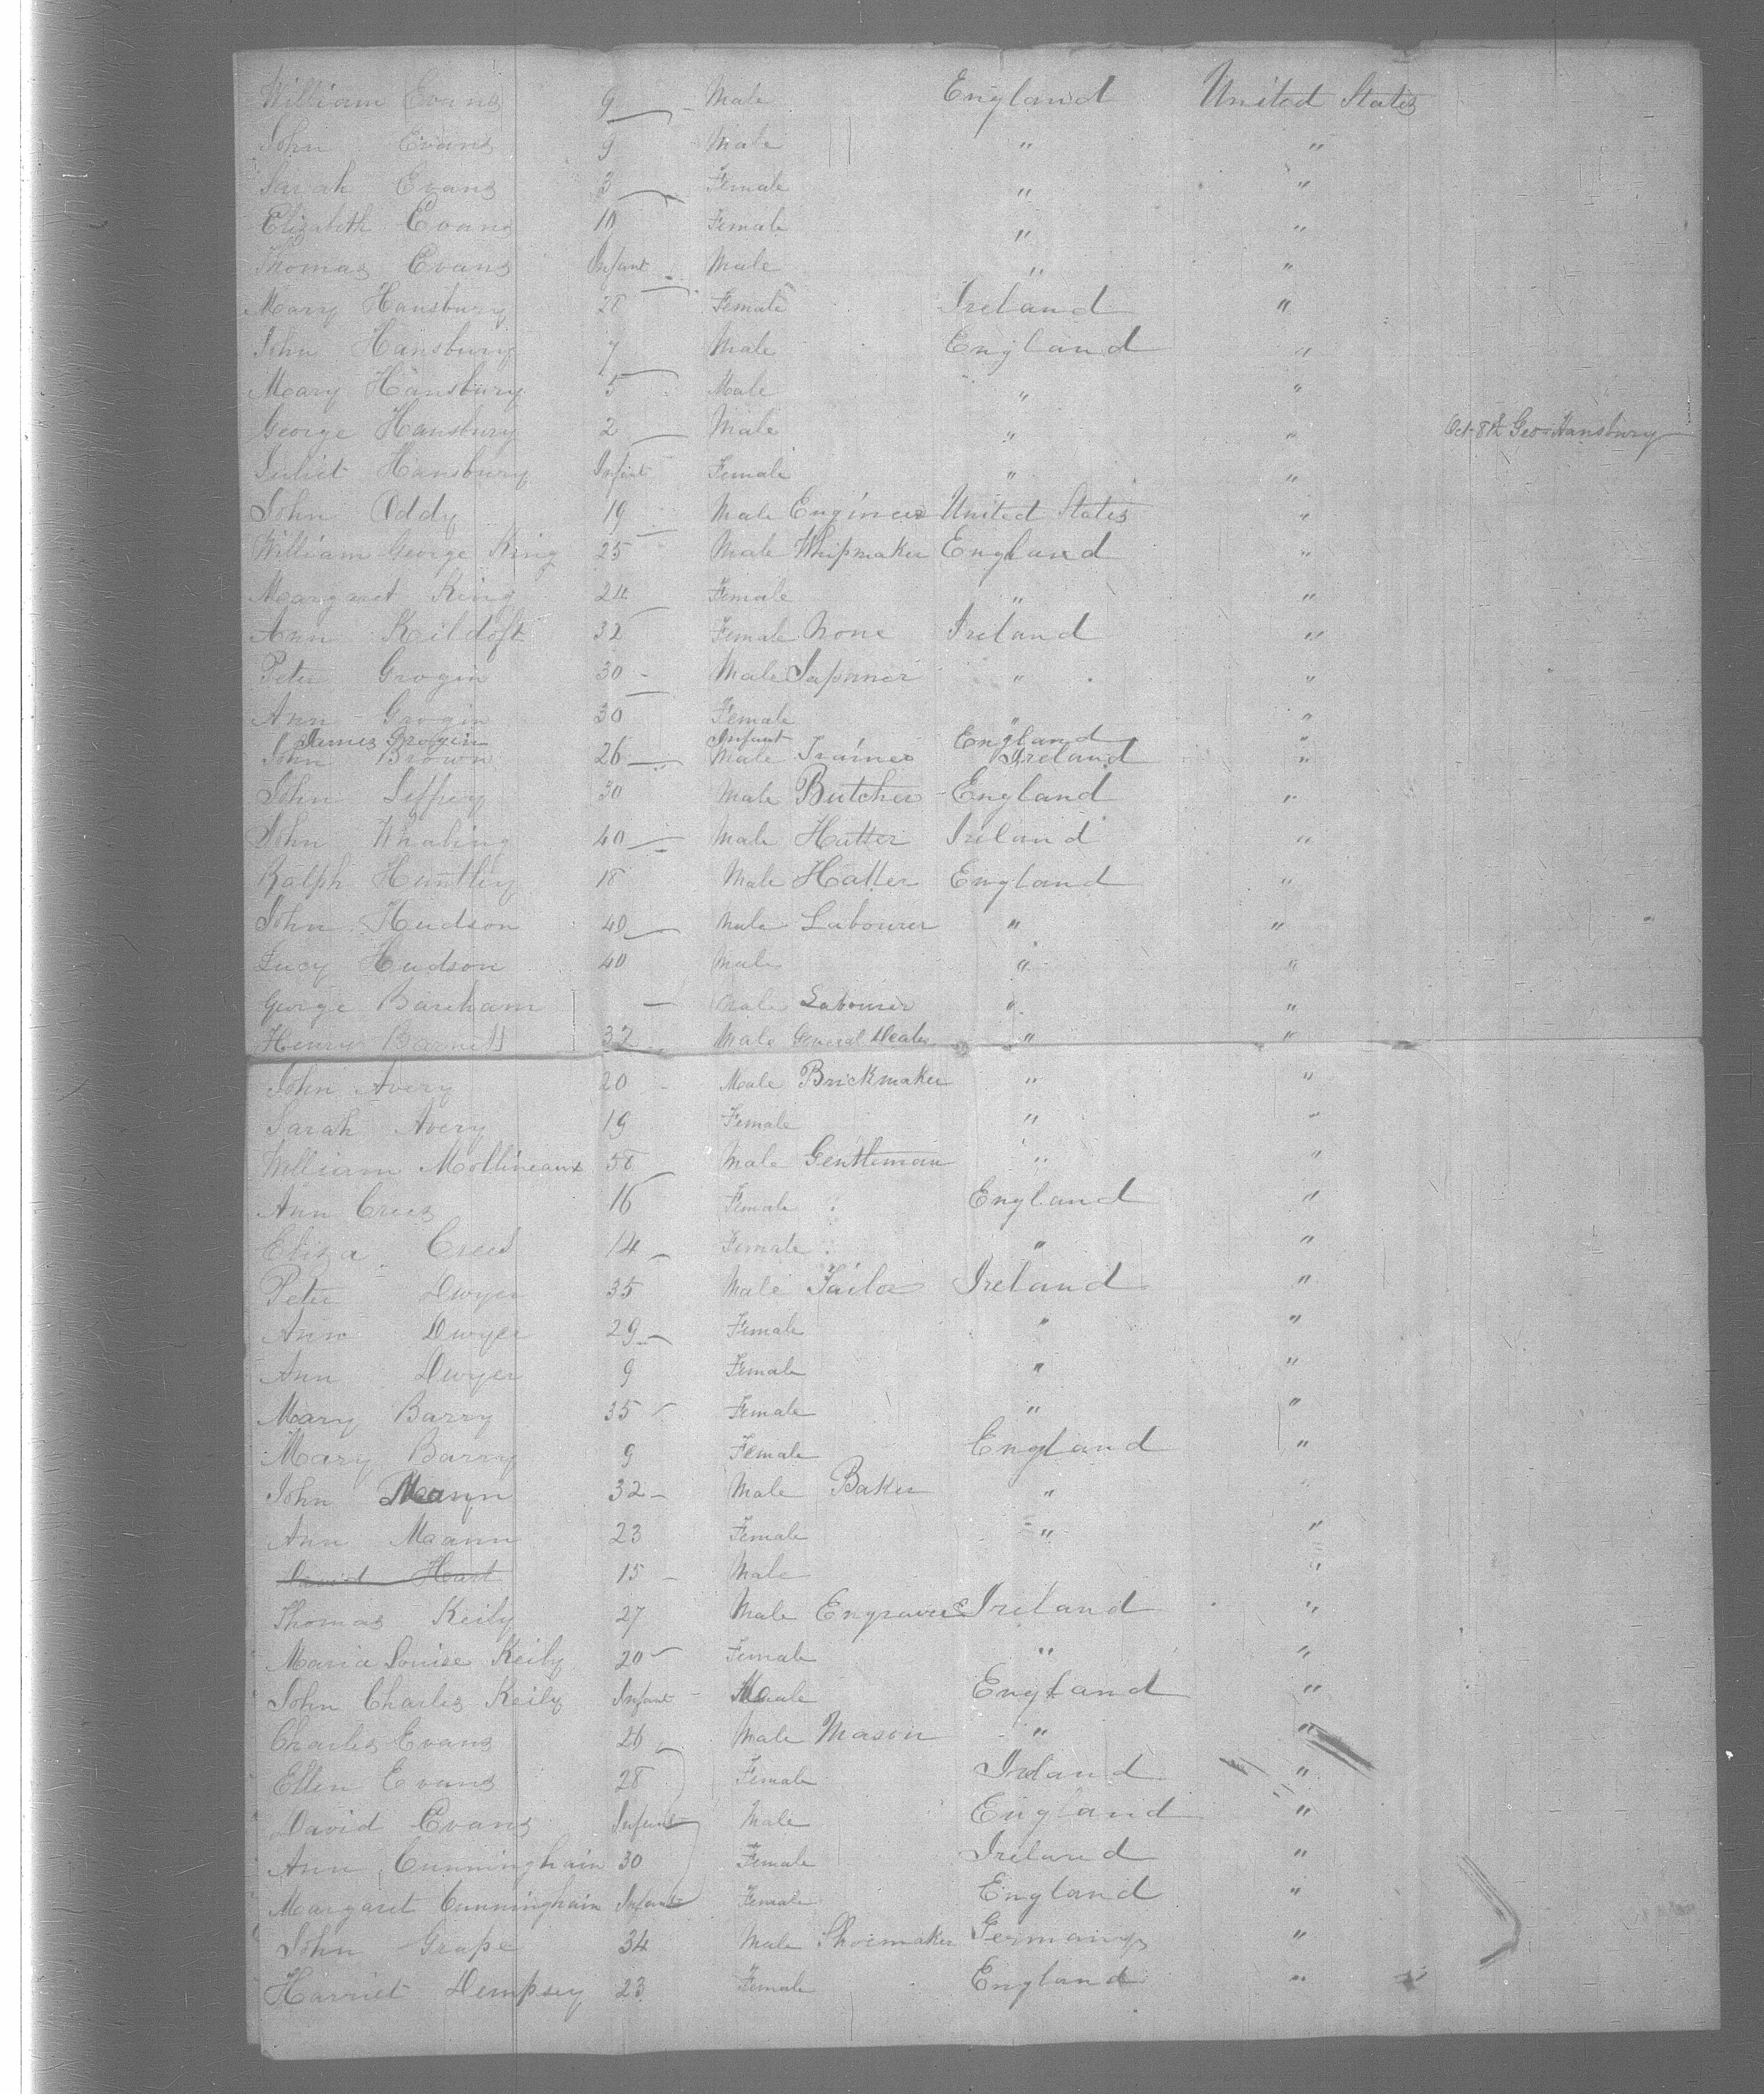 William Evans 9 Male England United States
John Evans 9 Male " "
Sarah Evans 3 Female " "
Elizabeth Evans 10 Female " "
Thomas Evans Infant Male " "
Mary Hansbury 28 Female Ireland "
John Hansbury 7 Male England "
Mary Hansbury 5 Male " "
George Hansbury 2 Male " " Oct 8th Geo Hansbury
Juliet Hansbury Infant Female " "
John Oddy 19 Male Engineer United States "
William George King 25 Male Whipmaker England "
Margaret King 24 Female " "
Ann Kildoft 32 Female None Ireland "
Peter Grogin 30 Male Japanner " "
Ann Grogin 30 Female " "
James Grogin Infant England "
John Brown 26 Male Trainer Ireland "
John Jeffrey 30 Male Butcher England "
John Whaling 40 Male Hatter Ireland "
Ralph Huntley 18 Male Hatter England "
John Hudson 40 Male Labourer " "
Lucy Hudson 40 Male " "
George Bareham Male Labourer " "
Henry Barnett 32 Male General Dealer " "
John Avery 20 Male Brickmaker " "
Sarah Avery 19 Female " "
William Mollineaux 58 Male Gentleman " "
Ann Crees 16 Female England "
Eliza Crees 14 Female " "
Peter Dwyer 35 Male Tailor Ireland "
Ann Dwyer 29 Female " "
Ann Dwyer 9 Female " "
Mary Barry 35 Female " "
Mary Barry 9 Female England "
John Mann 32 Male Baker "
Ann Mann 23 Female " "
David Hart 15 Male "
Thomas Keily 27 Male Engraver Ireland "
Maria Louise Keily 20 Female " "
John Charles Keily Infant Male England "
Charles Evans 26 Male Mason " "
Ellen Evans 28 Female Ireland "
David Evans Infant Male England "
Ann Cunninghain 30 Female Ireland "
Margaret Cunninghain Infant Female England "
John Grape 34 Male Shoemaker Germany "
Harriet Dempsey 23 Female England "